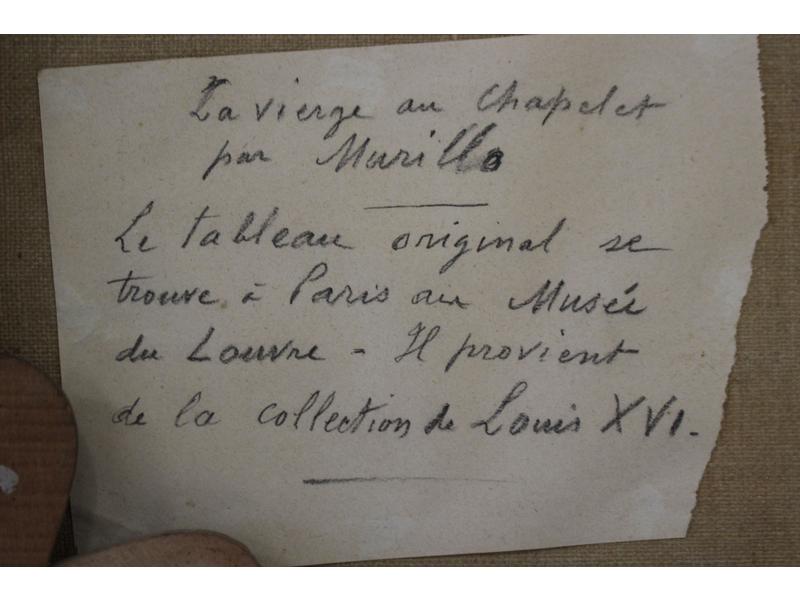 La vierge au Chapelet
par Murillo
Le tableau original se
trouve à Paris au Musée
du Louvre - Il provient
de la collection de Louis XVI.